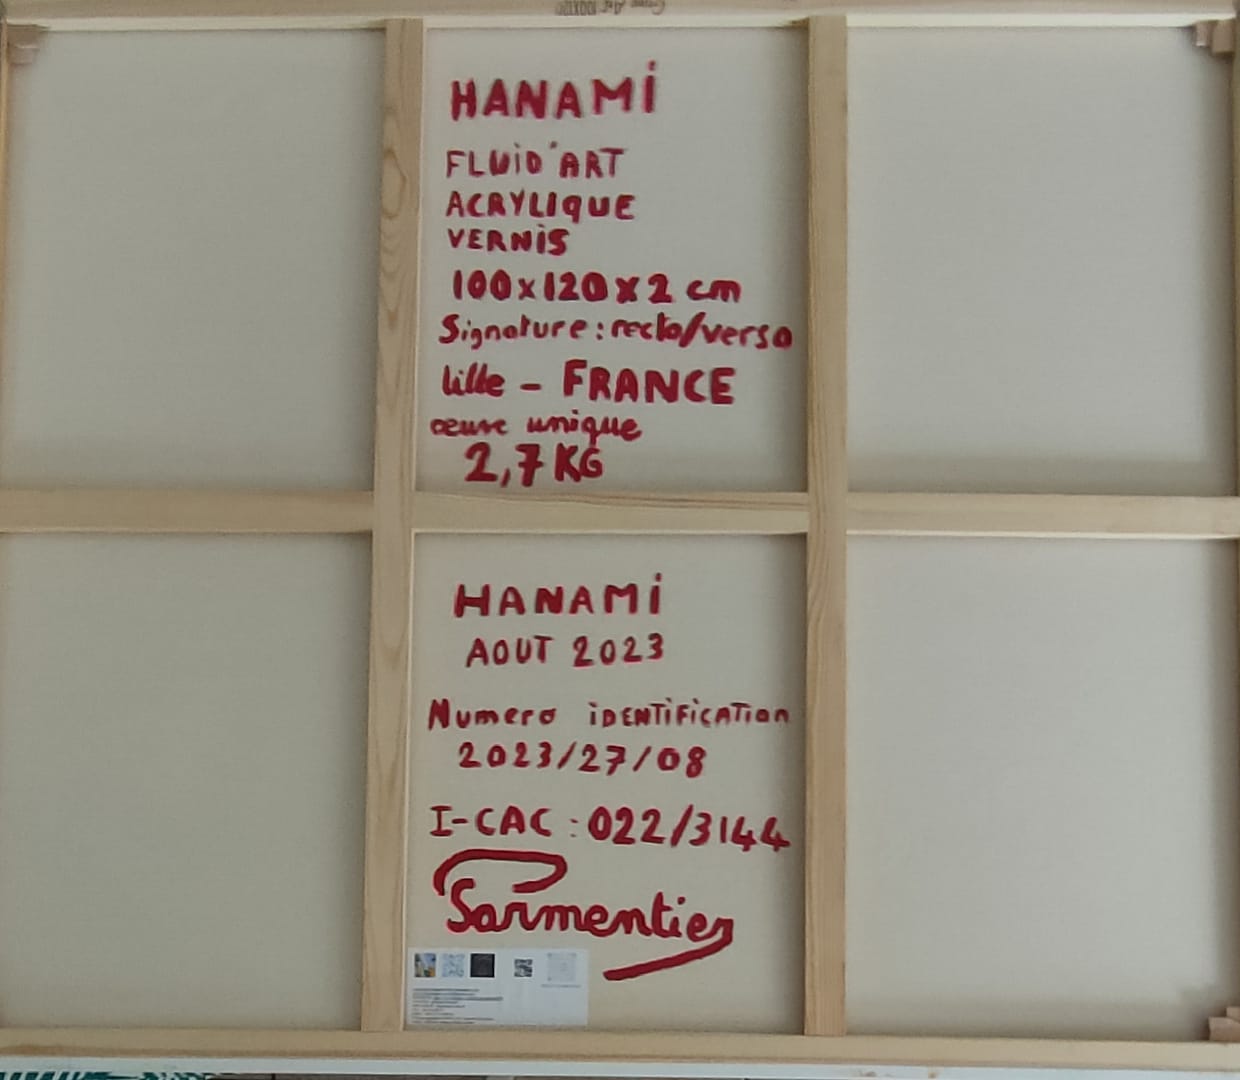 HANAMi
FLUiD'ART
ACRYLIQUE
VERNiS
100x120x2 cm
Signature: recto/verso
lille - FRANCE
œuvre unique
2,7 KG
HANAMi
AOUT 2023
Numero iDENTiFiCATion
2023/27/08
I-CAC: 022/3144
Sarmentier